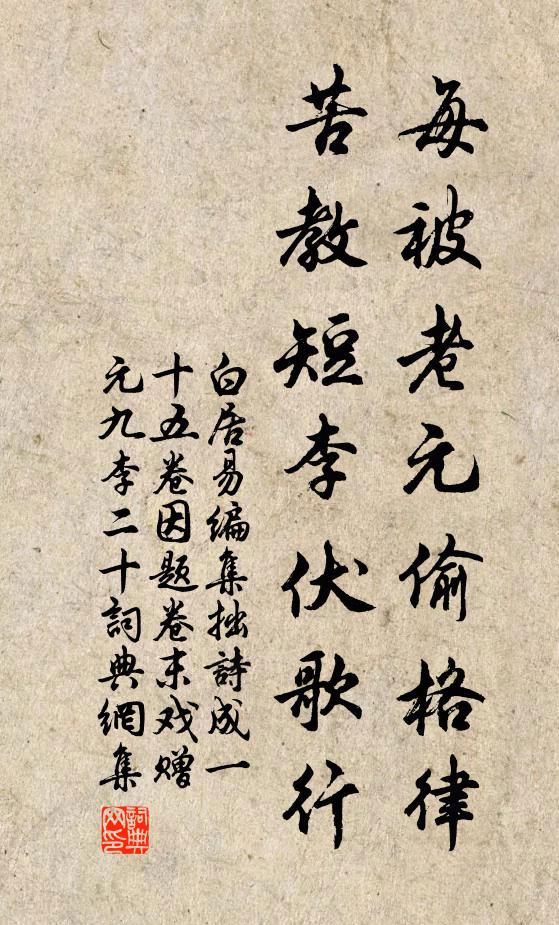 每被老元偷格律
苦教短李伏歌行
白居易编集拙詩成一
十五卷因题卷末戏赠
元九李二十詞典網集
詞典網印